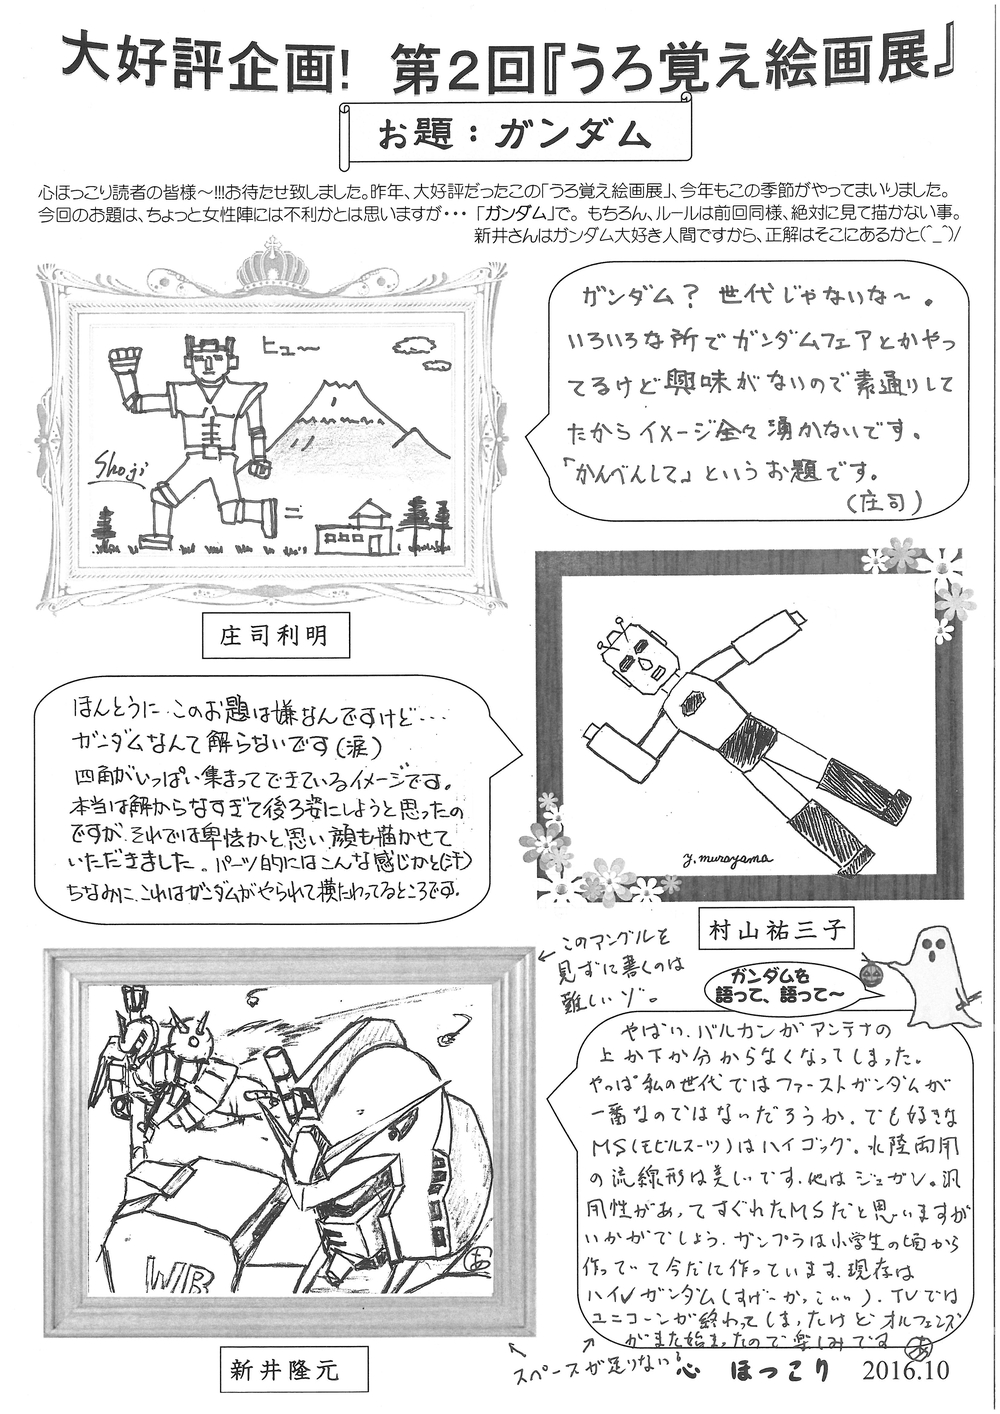 大好評企画！ 第２回『うろ覚え絵画展』
お題：ガンダム
心ほっこり読者の皆様～!!!お待たせ致しました。昨年、大好評だったこの「うろ覚え絵画展」、今年もこの季節がやってまいりました。
今回のお題は、ちょっと女性陣には不利かとは思いますが・・・「ガンダム」で。もちろん、ルールは前回同様、絶対に見て描かない事。
新井さんはガンダム大好き人間ですから、正解はそこにあるかと(^_^)/
ヒュ～
Shoji
庄司利明
ガンダム？ 世代じゃないな～。
いろいろな所でガンダムフェアとかやっ
てるけど興味がないので素通りして
たからイメージ全々湧かないです。
「かんべんして」というお題です。
(庄司)
y.murayama
村山祐三子
ほんとうに このお題は嫌なんですけど・・・
ガンダムなんて解らないです(涙)
四角がいっぱい集まってできているイメージです。
本当は解からなすぎて後ろ姿にしようと思ったの
ですが、それでは卑怯かと思い顔も描かせて
いただきました。パーツ的にはこんな感じかと(汗)
ちなみに、これはガンダムがやられて横たわってるところです。
このアングルを
見ずに書くのは
難しいゾ。
WB
あ
新井隆元
ガンダムを
語って、語って～
やばい、バルカンがアンテナの
上か下か分からなくなってしまった。
やっぱ私の世代ではファーストガンダムが
一番なのではないだろうか。でも好きな
MS(モビルスーツ)はハイゴッグ。水陸両用
の流線形は美しいです。他はジェガン。汎
用性があってすぐれたMSだと思いますが
いかがでしょう。ガンプラは小学生の頃から
作っていて今だに作っています。現在は
ハイνガンダム(すげーかっこいい)。TVでは
ユニコーンが終わってしまったけどオルフェンズ
がまた始まったので楽しみです あ
スペースが足りない！
心 ほっこり 2016.10